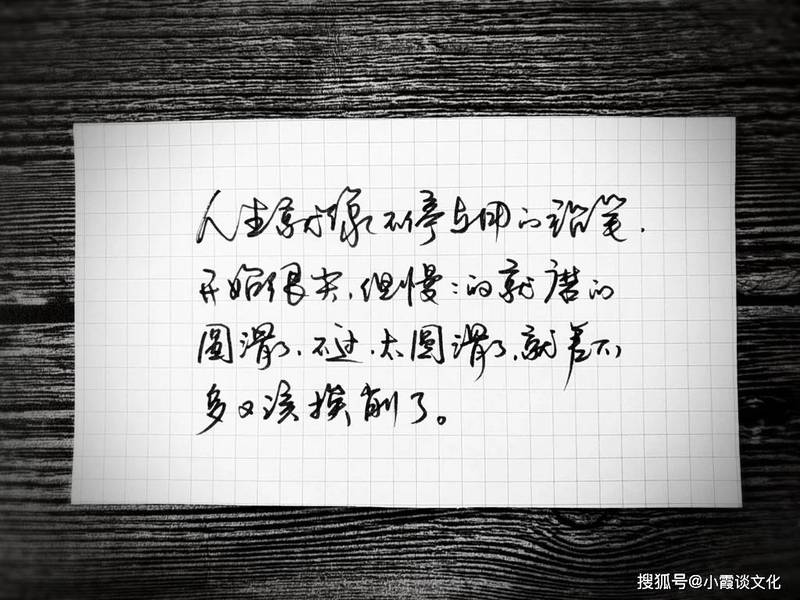 人生就像不停在用的铅笔,
开始很尖,但慢慢的就磨的
圆滑了,不过,太圆滑了,就差不
多又该挨削了。
搜狐号@小霞谈文化